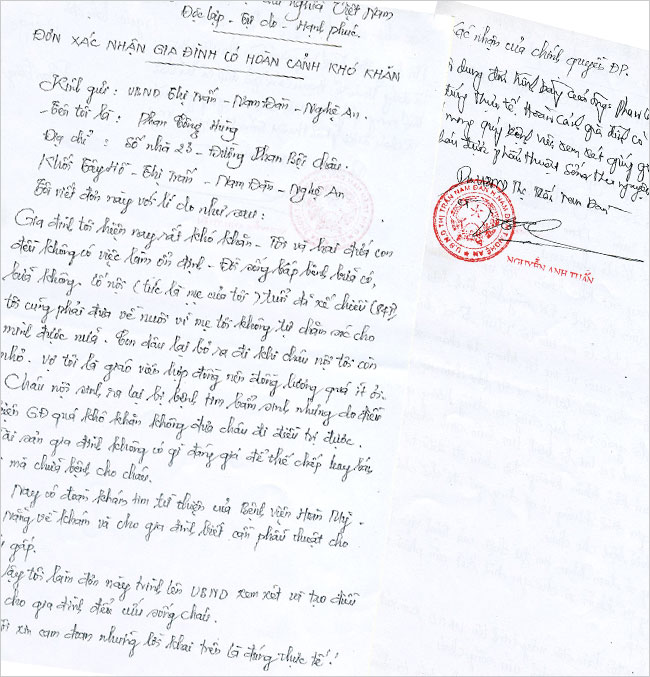 nghĩa Việt Nam
Độc lập - Tự do - Hạnh phúc.
ĐƠN XÁC NHẬN GIA ĐÌNH CÓ HOÀN CẢNH KHÓ KHĂN
Kính gửi: UBND Thị Trấn - Nam Đàn - Nghệ An.
- Tên tôi là: Phan Công Hùng
Địa chỉ: Số nhà 23 - Đường Phan Bội Châu.
Khối Tây Hồ - Thị Trấn - Nam Đàn - Nghệ An
Tôi viết đơn này với lí do như sau:
Gia đình tôi hiện nay rất khó khăn - Tôi và hai đứa con
đều không có việc làm ổn định - Đời sống bấp bênh bữa có,
bữa không. Cố nội (tức là mẹ của tôi) tuổi đã xế chiều (84T),
tôi cũng phải đưa về nuôi vì mẹ tôi không tự chăm sóc cho
mình được nữa. Con dâu lại bỏ ra đi khi cháu nội tôi còn
nhỏ. Vợ tôi là giáo viên hợp đồng nên đồng lương quá ít ỏi.
Cháu nội sinh ra lại bị bệnh tim bẩm sinh nhưng do điều
kiện GĐ quá khó khăn không đưa cháu đi điều trị được.
Tài sản gia đình không có gì đáng giá để thế chấp hay bán
mà chữa bệnh cho cháu.
Nay có đoàn khám tim từ thiện của Bệnh viện Hoàn Mỹ -
Nẵng về khám và cho gia đình biết cần phẫu thuật cho
gấp.
Vậy tôi làm đơn này trình lên UBND xem xét và tạo điều
cho gia đình để cứu sống cháu.
Tôi xin cam đoan những lời khai trên là đúng thực tế!
Xác nhận của chính quyền ĐP.
dung đơn trình bày của ông: Phan C
đúng thực tế. Hoàn cảnh gia đình có
mong quý bệnh viện xem xét giúp g
cháu được phẫu thuật sống theo nguyện
Thị Trấn Nam Đàn
U.B.N.D THỊ TRẤN NAM ĐÀN H.NAM ĐÀN T.NGHỆ AN
NGUYỄN ANH TUẤN